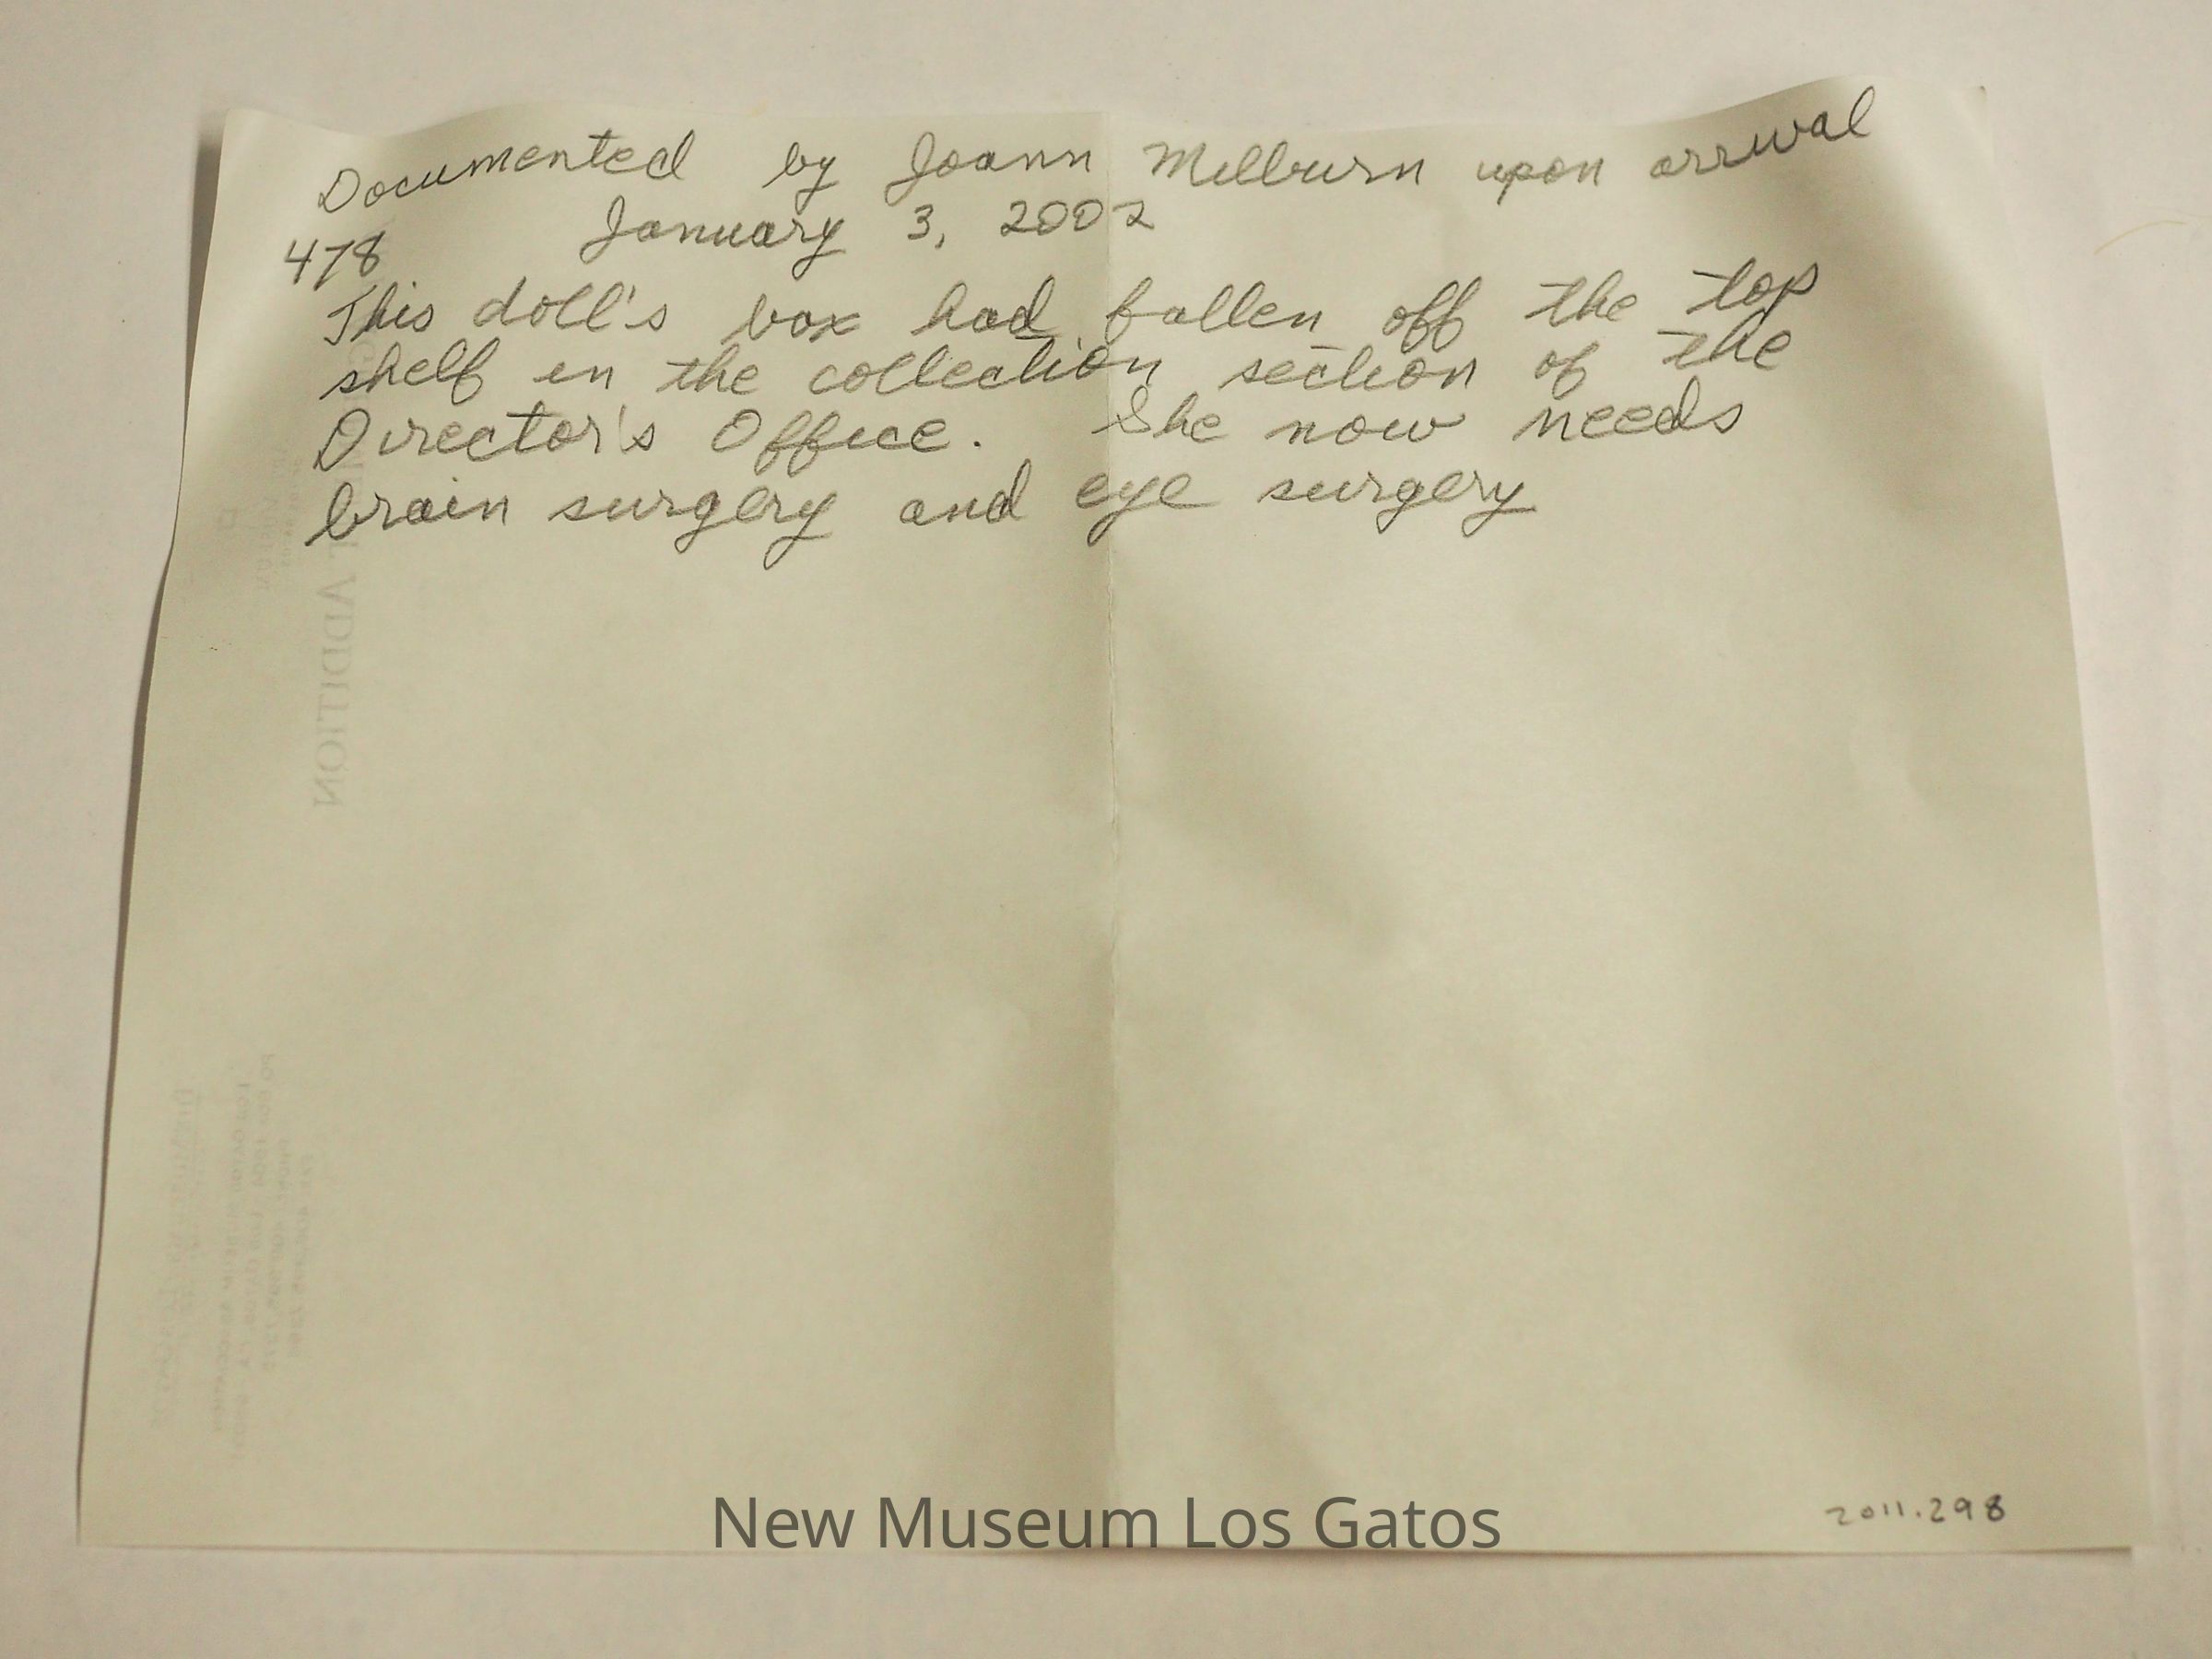 Documented by Joann Milburn upon arrival
January 3, 2002
478
This doll's box had fallen off the top
shelf in the collection section of the
Director's Office. She now needs
brain surgery and eye surgery
ADDITION
New Museum Los Gatos
2011.298